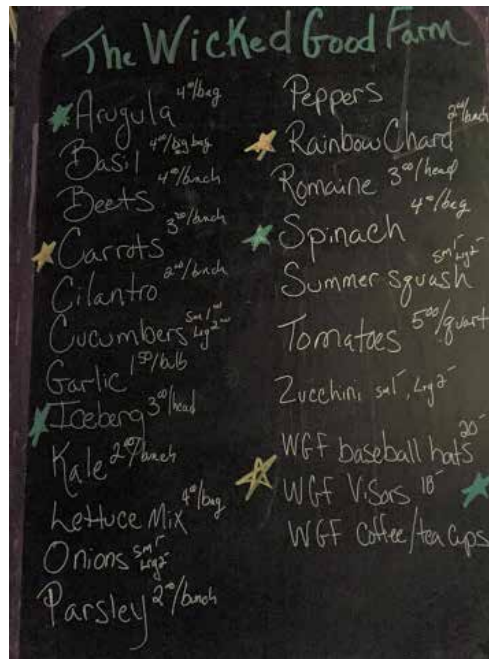 The Wicked Good Farm
Arugula 4⁰⁰/bag
Basil 4⁰⁰/big bag
Beets 4⁰⁰/bunch
Carrots 3⁰⁰/bunch
Cilantro 2⁰⁰/bunch
Cucumbers sm 1⁰⁰ Lrg 2⁰⁰
Garlic 1⁵⁰/bulb
Iceberg 3⁰⁰/head
Kale 2⁰⁰/bunch
Lettuce Mix 4⁰⁰/bag
Onions sm 1⁻ Lrg 2⁻
Parsley 2⁰⁰/bunch
Peppers
Rainbow Chard 2⁰⁰/bunch
Romaine 3⁰⁰/head
Spinach 4⁰⁰/bag
Summer squash sm 1⁻ Lrg 2⁻
Tomatoes 5⁰⁰/quart
Zucchini sm 1⁻, Lrg 2⁻
WGF baseball hats 20⁻
WGF Visors 18⁻
WGF Coffee/tea cups